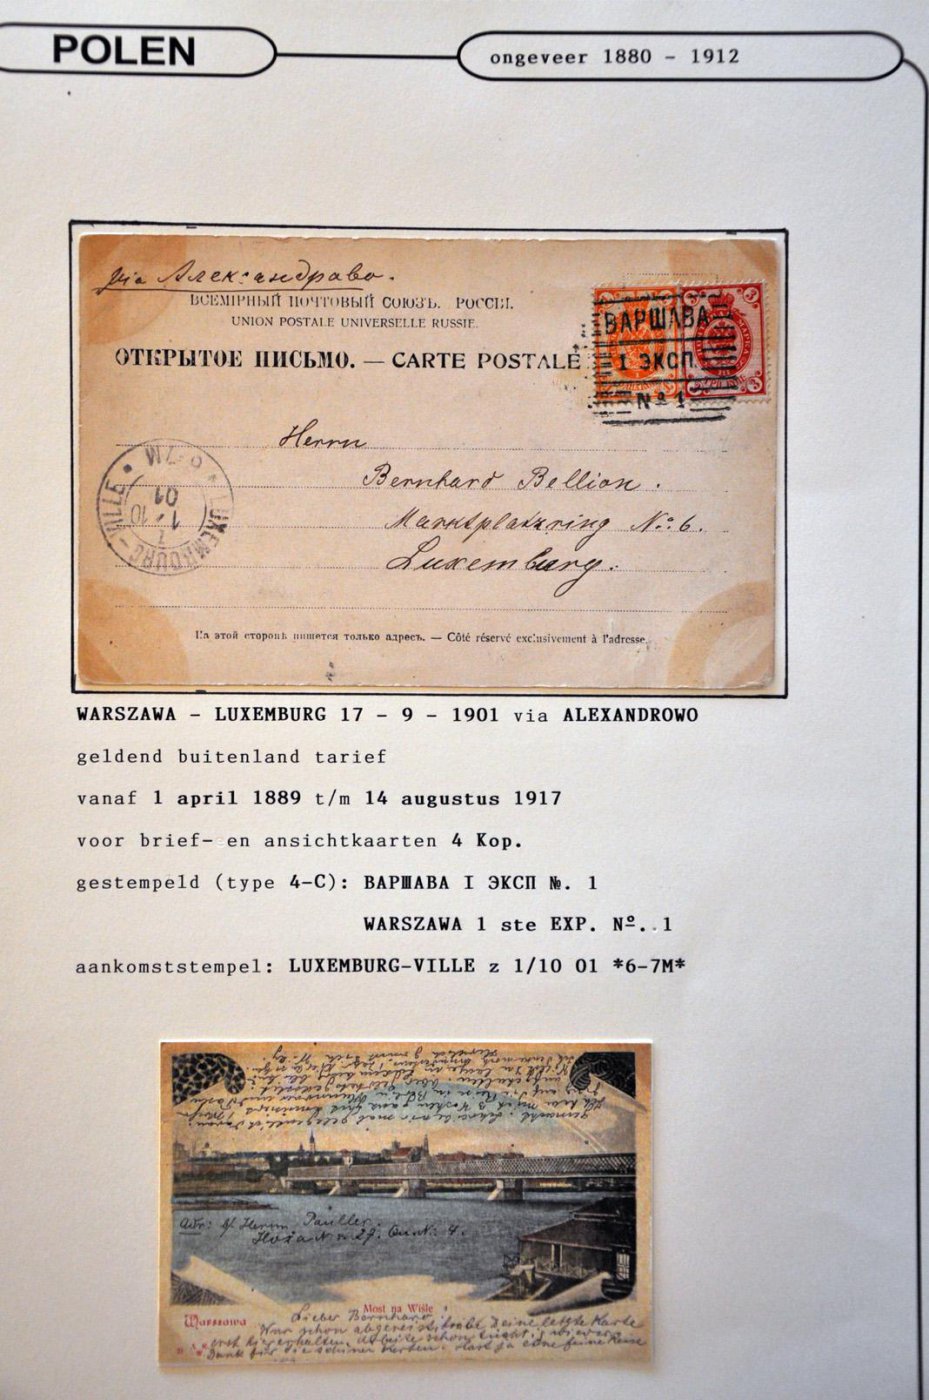 POLEN
ongeveer 1880 - 1912
via Александрово.
ВСЕМІРНЫЙ ПОЧТОВЫЙ СОЮЗЪ. РОССІЯ.
UNION POSTALE UNIVERSELLE RUSSIE.
ОТКРЫТОЕ ПИСЬМО. — CARTE POSTALE
ВАРШАВА
1 ЭКСП.
№ 1
3
3
Herrn
Bernhard Bellion.
Marktplatzring No: 6.
Luxemburg.
LUXEMBOURG-VILLE
6-7M
1-10
01
На этой сторонѣ пишется только адресъ. — Côté réservé exclusivement à l'adresse.
WARSZAWA - LUXEMBURG 17 - 9 - 1901 via ALEXANDROWO
geldend buitenland tarief
vanaf 1 april 1889 t/m 14 augustus 1917
voor brief- en ansichtkaarten 4 Kop.
gestempeld (type 4-C): ВАРШАВА I ЭКСП №. 1
WARSZAWA 1 ste EXP. Nº. 1
aankomststempel: LUXEMBURG-VILLE z 1/10 01 *6-7M*
Adr: Herrn Pauller.
Hoża No 27. 4.
Most na Wiśle
Warszawa
Lieber Bernhard!
War schon abgereist Deine letzte Karte
erst hier erhalten. Arbeite schon
Dank für die schönen Karten.